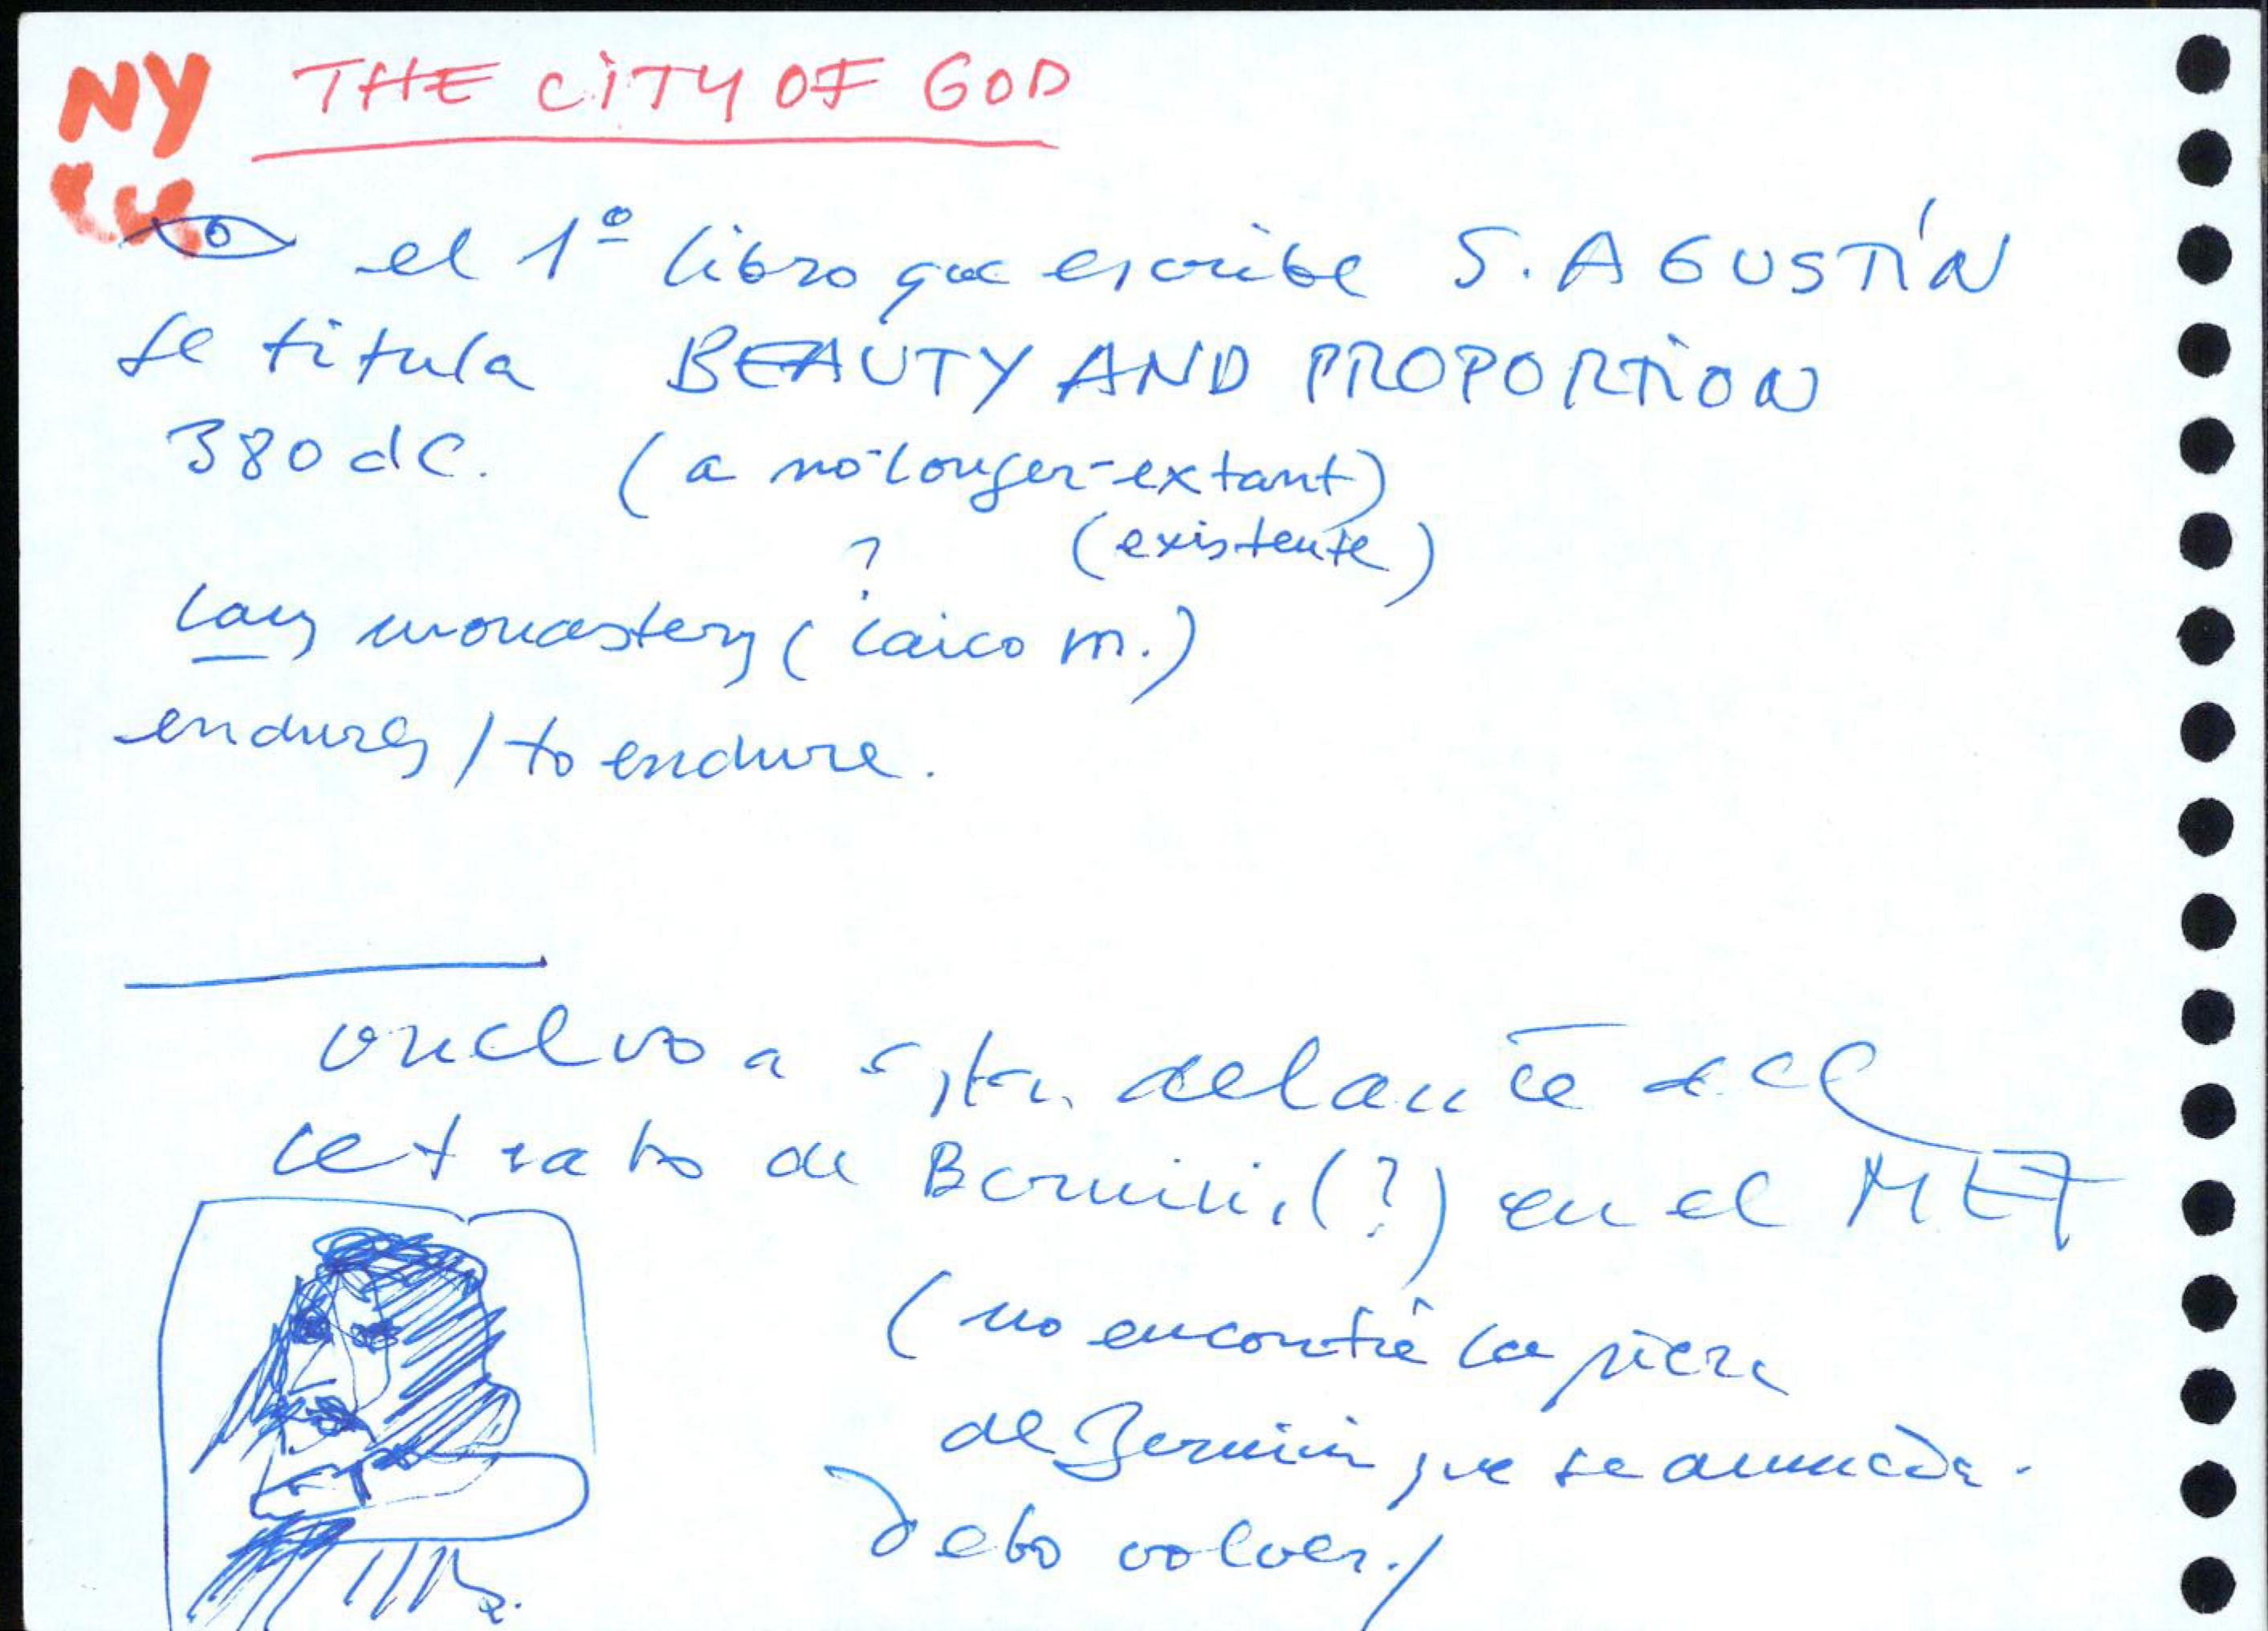 NY THE CITY OF GOD
el 1º libro que escribe S. AGUSTÍN
se titula BEAUTY AND PROPORTION
380 dC. (a no-longer-extant)
(existente)
?
Lay monastery (laico m.)
endures / to endure.
vuelvo a estar delante del
retrato de Bernini, (?) en el MET
(no encontré la pieza
de Bernini que se anuncia.
Debo volver./